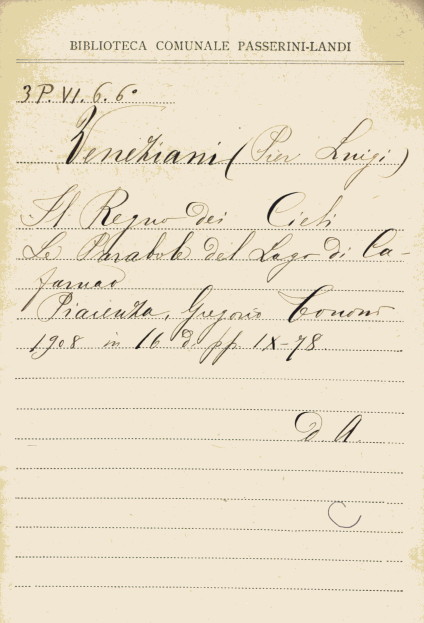 BIBLIOTECA COMUNALE PASSERINI-LANDI
3 P. VI. 6. 6º
Veneziani (Pier Luigi)
Il Regno dei Cieli
Le Parabole del Lago di Ca-
farnao
Piacenza, Gregorio Tononi
1908 in 16 d pp. IX-78
D. A.